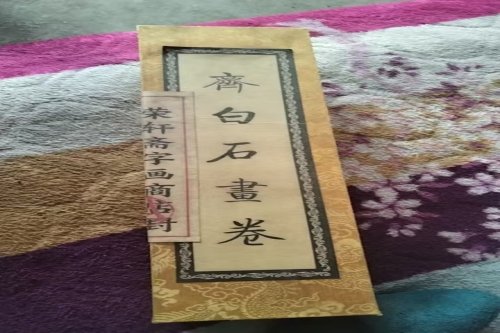 齊白石畫卷
荣轩斋字画商店封